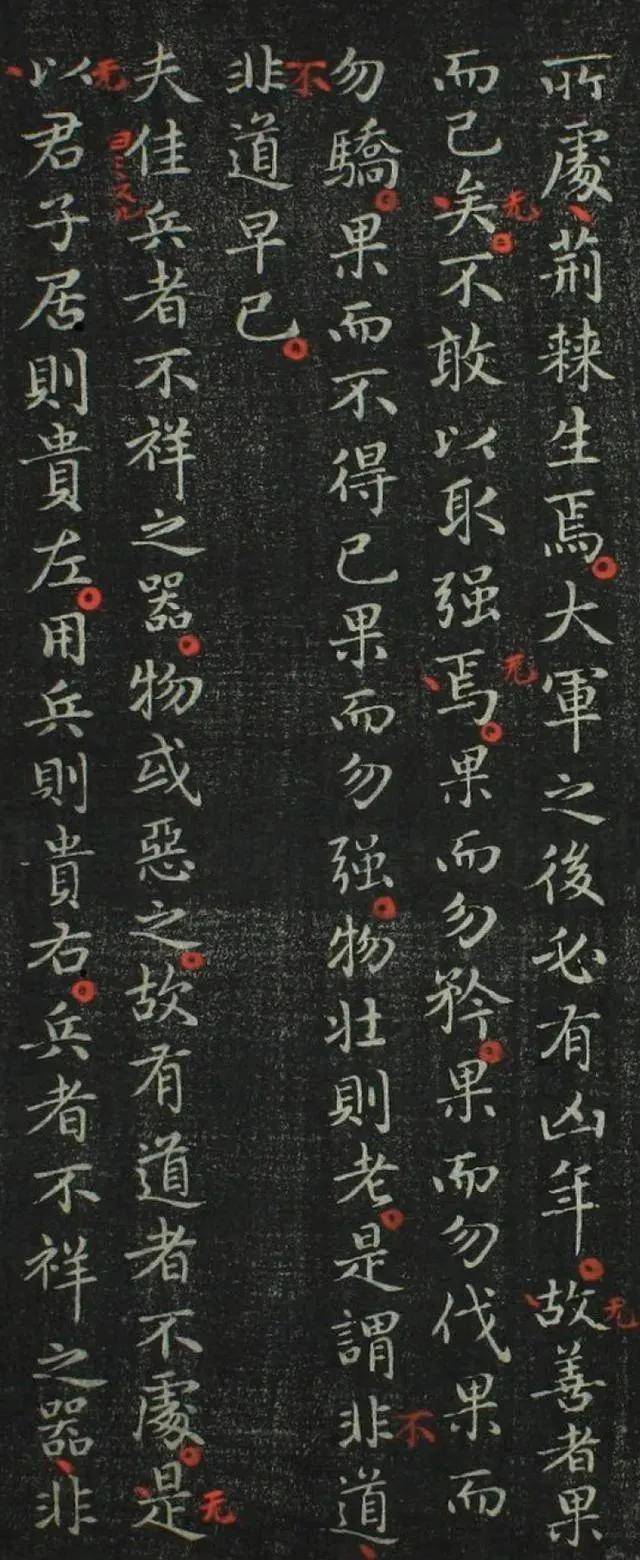 所處荆棘生焉大軍之後必有凶年故善者果
无
而已矣不敢以取强焉果而勿矜果而勿伐果而
无
无
勿驕果而不得已果而勿强物壯則老是謂非道
不
非道早已
不
夫佳兵者不祥之器物或惡之故有道者不處是
无
以君子居則貴左用兵則貴右兵者不祥之器非
无